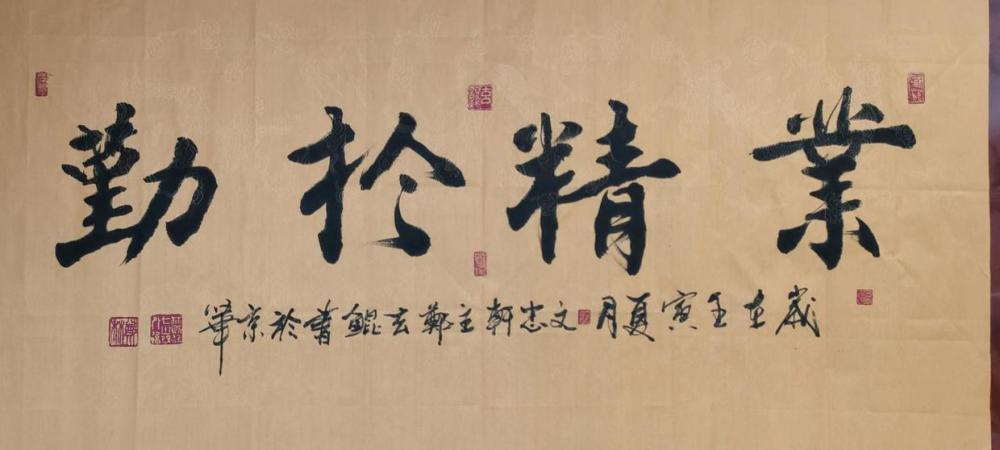 業精於勤
歲在壬寅夏月文忠軒主鄭玄鯤書於京華